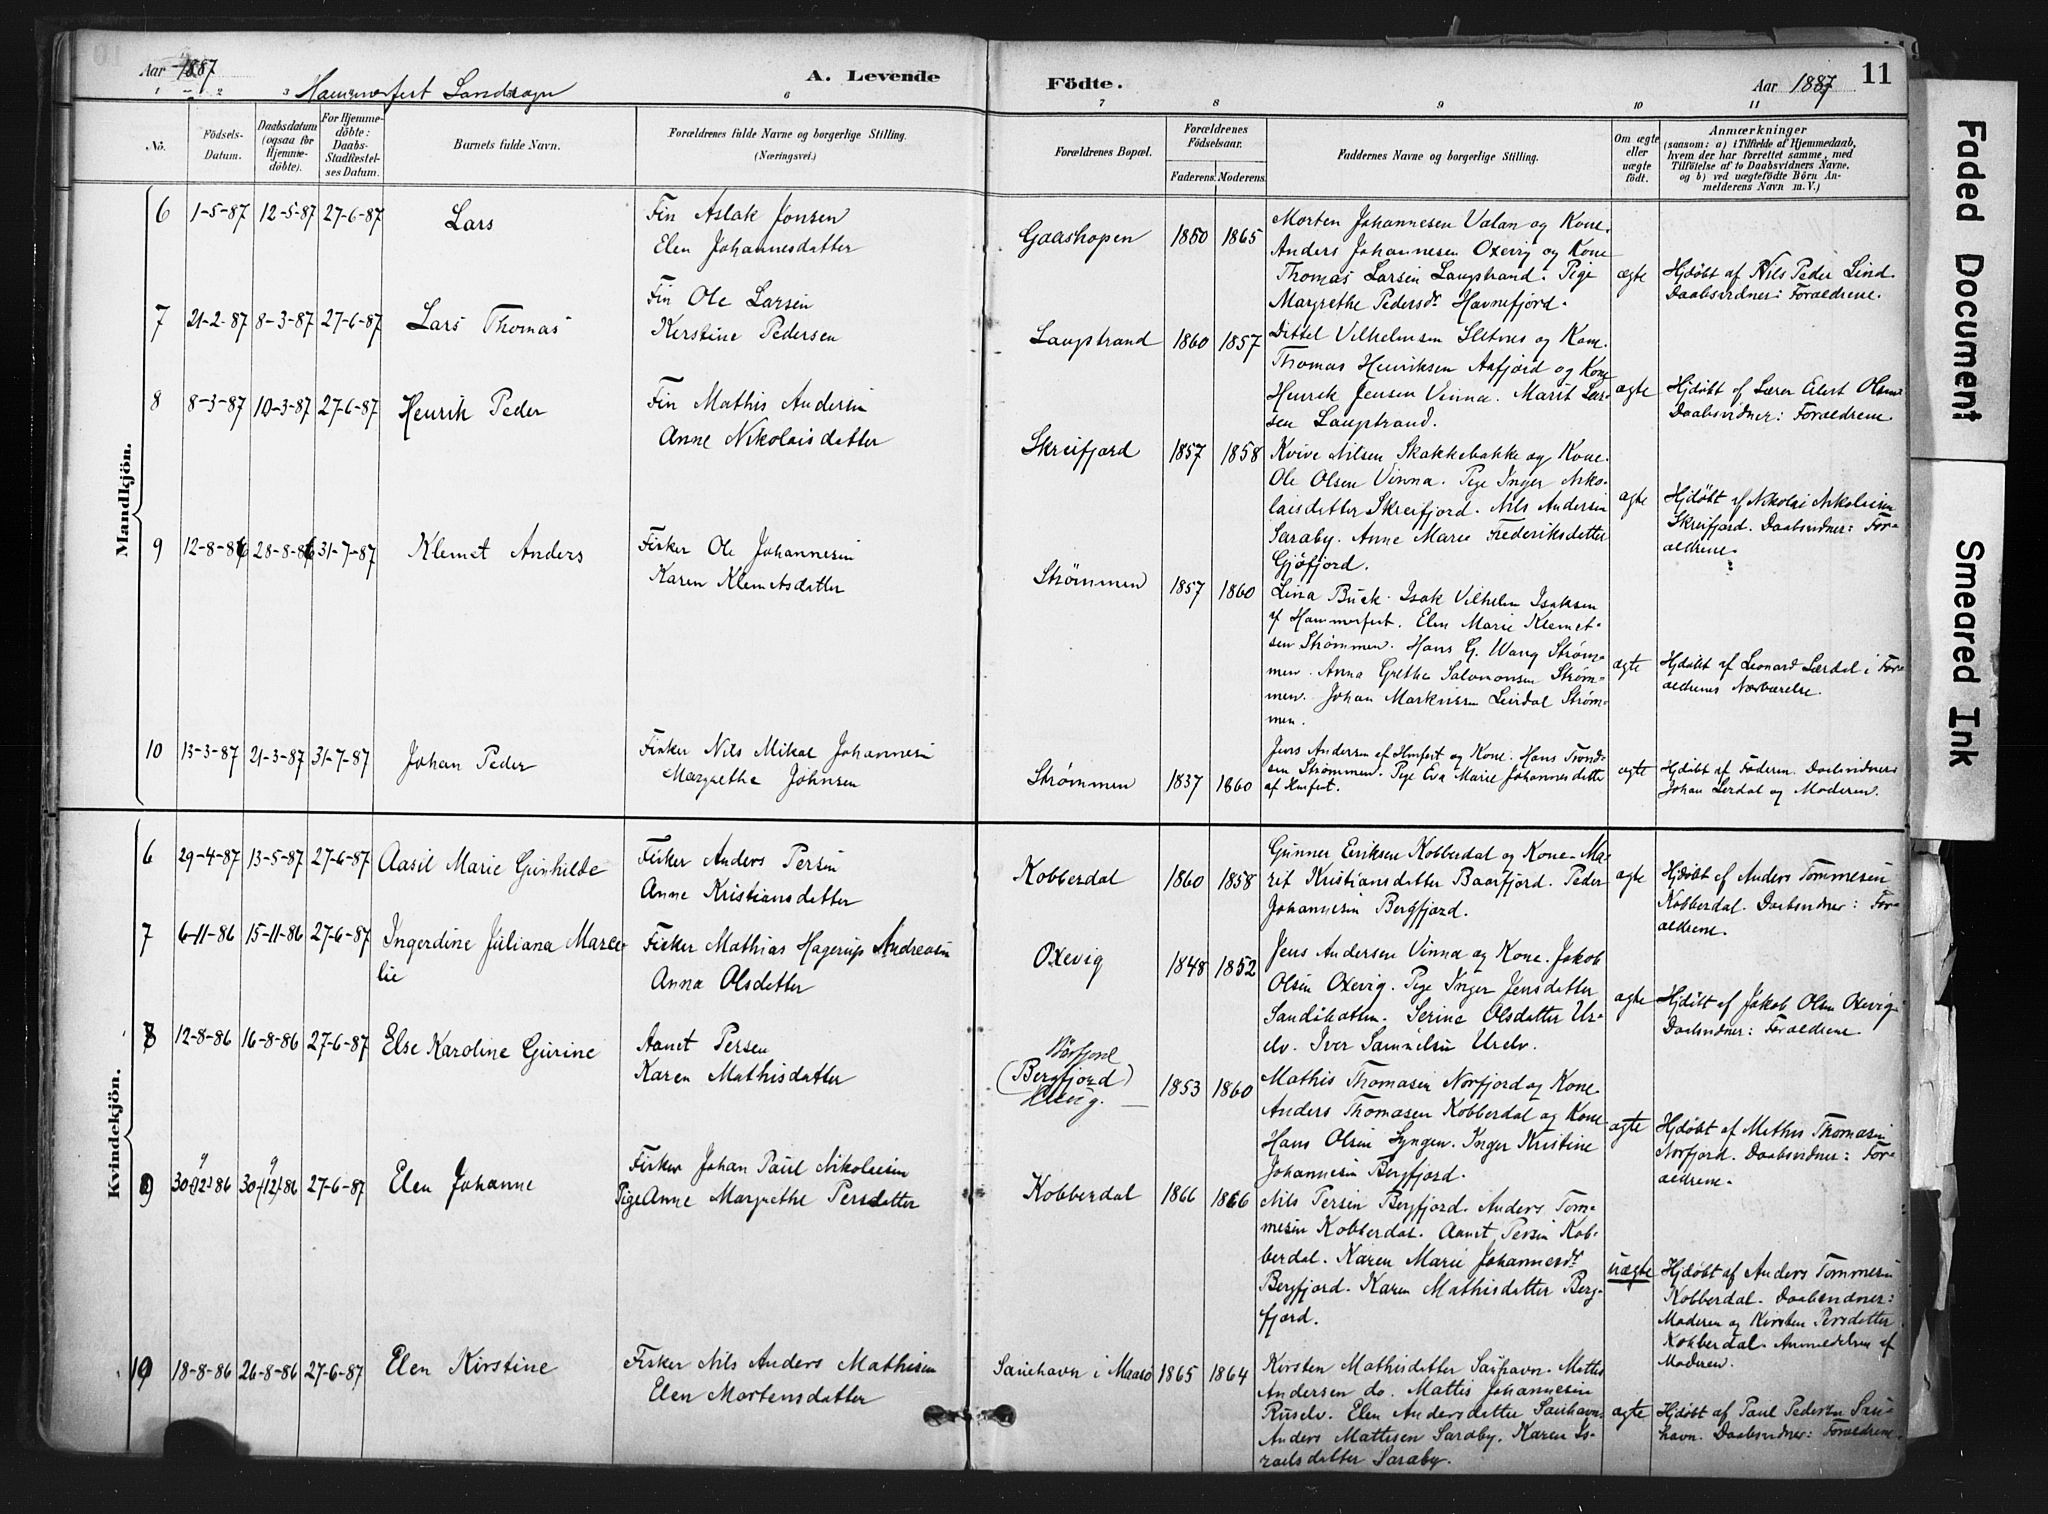 Aar 1887
A. Levende
Hammerfest Landsogn
1 2 3 6
No.
Födsels-
Datum.
Daabsdatum
(ogsaa for
Hjemme-
döbte).
For Hjemme-
döbte:
Daabs-
Stadfæstel-
ses Datum.
Barnets fulde Navn.
Forældrenes fulde Navne og borgerlige Stilling.
(Næringsvei.)
Mandkjön.
6 1-5-87 12-5-87 27-6-87 Lars
Fin Aslak Jonsen
Elen Johannesdatter
7 21-2-87 8-3-87 27-6-87 Lars Thomas
Fin Ole Larsen
Kerstine Pedersen
8 8-3-87 10-3-87 27-6-87 Henrik Peder
Fin Mathis Andersen
Anne Nikolaisdatter
9 12-8-86 28-8-86 31-7-87 Klemet Anders
Fisker Ole Johannesen
Karen Klemetsdatter
10 13-3-87 21-3-87 31-7-87 Johan Peder
Fisker Nils Mikal Johannesen
Margrethe Johnsen
Kvindekjön.
6 29-4-87 13-5-87 27-6-87 Aasil Marie Gunhilde
Fisker Anders Persen
Anne Kristiansdatter
7 6-11-86 15-11-86 27-6-87 Ingerdine Juliana Marce-
lie
Fisker Mathias Hagerup Andreasen
Anna Olsdatter
8 12-8-86 16-8-86 27-6-87 Else Karoline Gurine
Aanet Persen
Karen Mathisdatter
9 27-6-87 Elen Johanne
Fisker Johan Paul Nikolaisen
Pige Anne Margrethe Persdatter
10 18-8-86 26-8-86 27-6-87 Elen Kirstine
Fisker Nils Anders Mathisen
Elen Mortensdatter
Födte.
Aar 1887
11
7 8 9 10 11
Forældrenes Bopæl.
Forældrenes
Födselsaar.
Faderens. Moderens.
Faddernes Navne og borgerlige Stilling.
Om ægte
eller
uægte
födt.
Anmærkninger
(saasom: a) i Tilfælde af Hjemmedaab,
hvem der har forrettet samme, med
Tilföielse af to Daabsvidners Navne,
og b) ved uægtefödte Börn An-
melderens Navn m. V.)
Gaashopen 1850 1865
Morten Johannesen Valan og Kone.
Anders Johannesen Oxevig og Kone
Thomas Larsen Laugstrand. Pige
Margrethe Pedersdr Havnefjord.
ægte
Hjdøbt af Nils Peder Lind.
Daabsvidner: Forældrene.
Laugstrand 1860 1857
Dittel Vilhelmsen Sletnes og Kone.
Thomas Henriksen Aafjord og Kone
Henrik Jensen Vinna. Marit Lar-
sen Laugstrand.
ægte
Hjdøbt af Lærer Eilert Olsen
Daabsvidner: Forældrene
Skreifjord 1857 1858
Kvive Nilsen Skakkebakke og Kone.
Ole Olsen Vinna. Pige Inger Niko-
laisdatter Skreifjord. Nils Andersen
Saraby. Anne Marie Frederiksdatter
Gjøfjord.
ægte
Hjdøbt af Nikolai Nikolaisen
Skreifjord. Daabsvidner: For-
ældrene
Strømmen 1857 1860
Lina Buck. Isak Vilhelm Isaksen
af Hammerfest. Elen Marie Klemet-
sen Strømmen. Hans G. Wang Strøm-
men. Anna Grethe Salomonsen Strøm-
men. Johan Markusen Leirdal Strøm-
men.
ægte
Hjdøbt af Leonard Lerdal i For-
ældrenes Nærværelse.
Strømmen 1837 1860
Jens Andersen af Hmfest og Kone. Hans Trond-
sen Strømmen. Pige Eva Marie Johannesdatter
af Hmfest.
ægte
Hjdøbt af Faderen. Daabsvidner:
Johan Lerdal og Moderen.
Kobberdal 1860 1858
Gunner Eriksen Kobberdal og Kone. Ma-
rit Kristiansdatter Baarfjord. Peder
Johannesen Bergfjord.
ægte
Hjdøbt af Anders Tommesen
Kobberdal. Daabsvidner: For-
ældrene.
Oxevig 1848 1852
Jens Andersen Vinna og Kone. Jakob
Olsen Oxevig. Pige Inger Jensdatter
Serine Olsdatter Ur-
elv. Iver Samuelsen Urelv.
ægte
Hjdøbt af Jakob Olsen Oxevig.
Daabsvidner: Forældrene
(Bergfjord) 1853 1860
Mathis Thomasen Norfjord og Kone
Anders Thomasen Kobberdal og Kone
Hans Olsen Lyngen. Inger Kristine
Johannesen Bergfjord.
ægte
Hjdøbt af Mathis Thomasen
Norfjord. Daabsvidner: For-
ældrene.
Kobberdal 1866 1866
Nils Persen Bergfjord. Anders Tom-
mesen Kobberdal. Aanet Persen Kob-
berdal. Karen Marie Johannesdr
Bergfjord. Karen Mathisdatter Berg-
fjord.
uægte
Hjdøbt af Anders Tommesen
Kobberdal. Daabsvidner:
Moderen og Kirsten Persdatter
Kobberdal. Anmeldelsen af
Moderen.
Sauehavn i Maasø 1865 1864
Kirsten Mathisdatter Sauhavn. Mattis
Andersen do. Mattis Johannesen
Ruselv. Elen Andersdatter Sauhavn.
Anders Mattisen Saraby. Karen Is-
raelsdatter Saraby.
ægte
Hjdøbt af Paul Pedersen Sau-
havn. Daabsvidner: Forældrene.
Faded Document
Smeared Ink